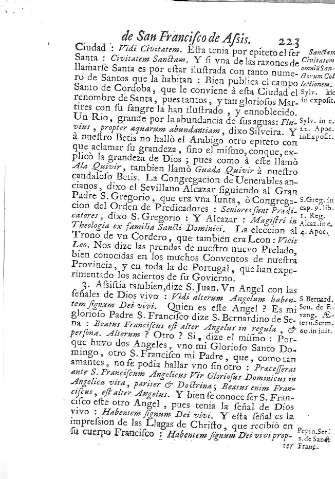 de San Francisco de Asis.
223
Ciudad : Vidi Civitatem. Esta tenia por epiteto el ser
Santa : Civitatem Sanctam. Y si vna de las razones de
llamarse Santa es por estar ilustrada con tanto nume-
ro de Santos que la habitan : Bien publica el campo
Santo de Cordoba, que le conviene à esta Ciudad el
renombre de Santa, pues tantos, y tan gloriosos Mar-
tires con su sangre la han ilustrado, y ennoblecido.
Un Rio, grande por la abundancia de sus aguas: Flu-
vius, propter aquarum abundantiam, dixo Silveira. Y
à nuestro Betis no hallò el Arabigo otro epiteto con
que aclamar su grandeza, sino el mismo, conque, ex-
plicò la grandeza de Dios; pues como à este llamò
Ala Quivir, tambien llamò Guada Quivir à nuestro
caudaloso Betis. La Congregacion de Venerables an-
cianos, dixo el Sevillano Alcazar siguiendo al Gran
Padre S. Gregorio, que era vna Iunta, ò Congrega-
cion del Orden de Predicadores : Seniores sunt Prædi-
catores, dixo S. Gregorio : Y Alcazar : Magistri in
Theologia ex familia Sancti Dominici. La eleccion al
Trono de vn Cordero, que tambien era Leon : Vicit
Leo. Nos dize las prendas de nuestro nuevo Prelado,
bien conocidas en los muchos Conventos de nuestra
Provincia, y en toda la de Portugal, que han expe-
rimentado los aciertos de su Govierno.
3. Assistia tambien, dize S. Juan. Vn Angel con las
señales de Dios vivo : Vidi alterum Angelum haben-
tem signum Dei vivi. Quien es este Angel ? Es mi
glorioso Padre S. Francisco dize S. Bernardino de Se-
na : Beatus Franciscus est alter Angelus in regula, &
persona. Alterum ? Otro ? Si, dize el mismo : Por-
que huvo dos Angeles, vno mi Glorioso Santo Do-
mingo, otro S. Francisco mi Padre, que, como tan
amantes, no se podia hallar vno sin otro : Præcesserat
ante S. Franciscum Angelicus Vir Gloriosus Dominicus in
Angelica vita, pariter & Doctrina; Beatus enim Fran-
ciscus, est alter Angelus. Y bien se conoce ser S. Fran-
cisco este otro Angel, pues tenia la señal de Dios
vivo : Habentem signum Dei vivi. Y esta señal es la
impresion de las Llagas de Christo, que recibiò en
su cuerpo Francisco : Habentem signum Dei vivi prop-
ter
Sanctam
Civitatem
Sylv. in c.
S. Greg. in
Reg.
4. Apoc.
S. Bernard.
Sen. de
Franc.